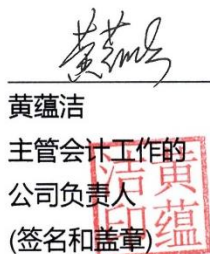 黄蕴洁
黄蕴洁
主管会计工作的
公司负责人
(签名和盖章)
黄蕴
洁印